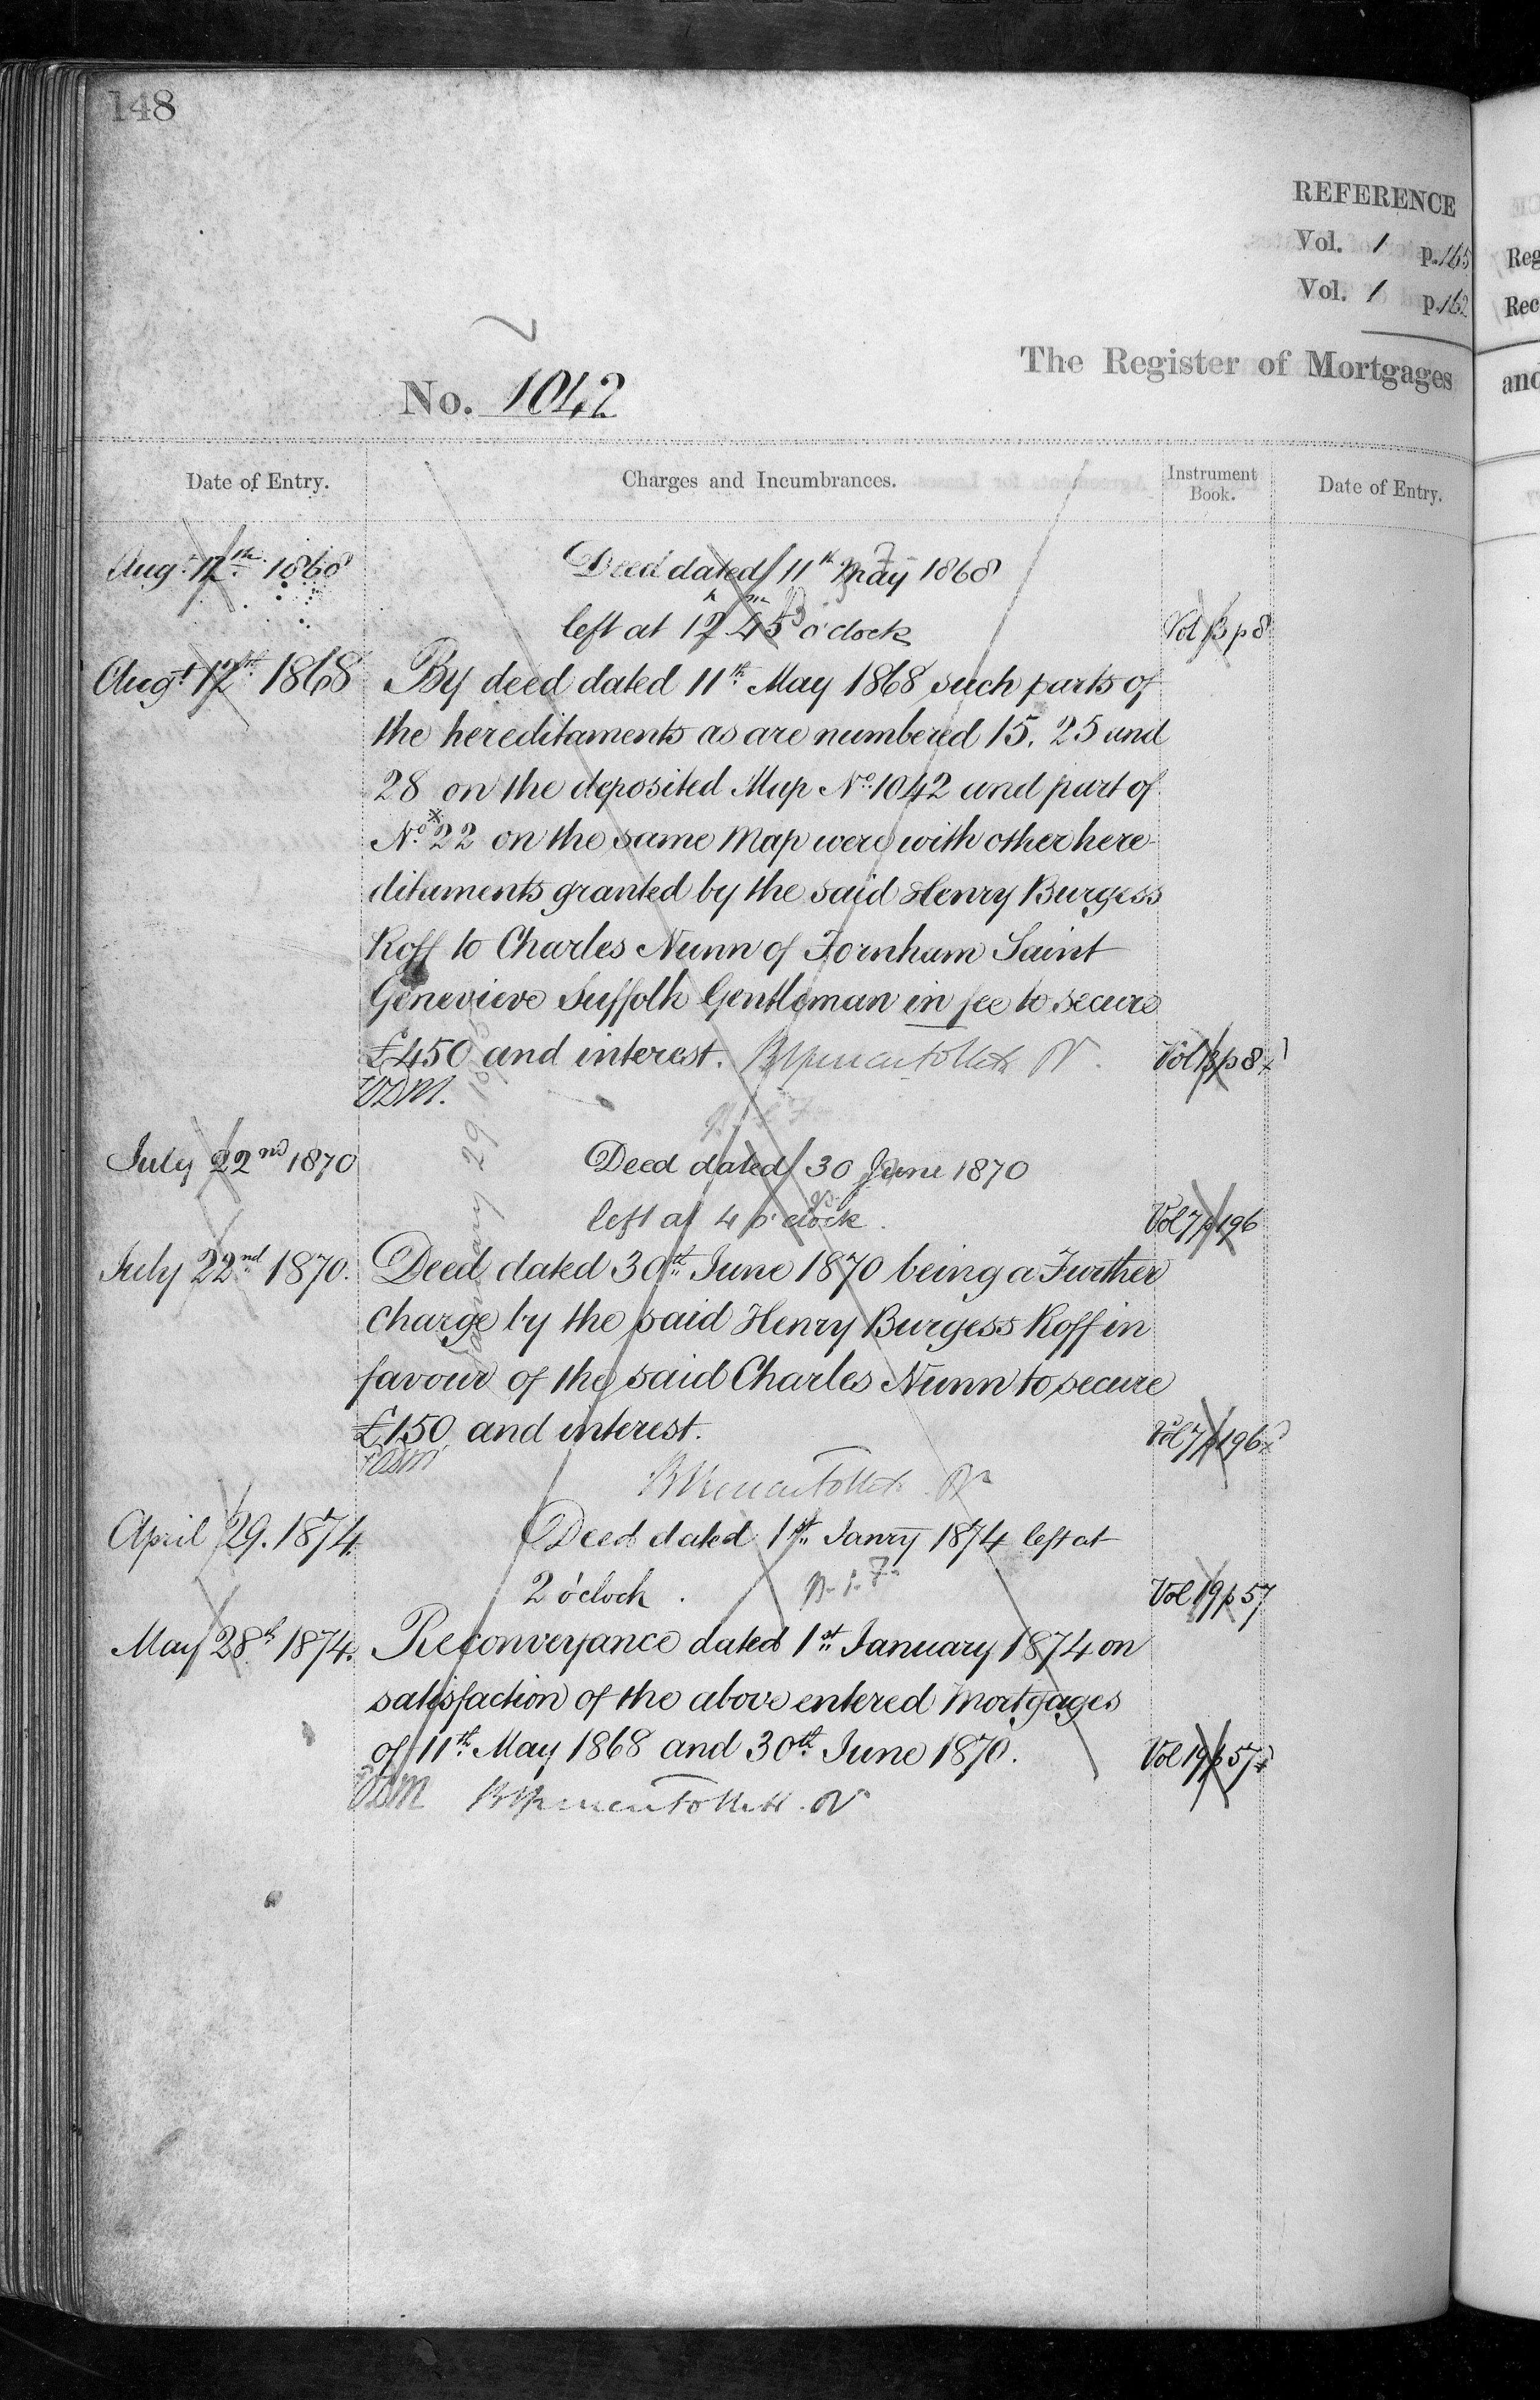 148
REFERENCE
Vol. 1 p. 165
Vol. 1 p. 162
The Register of Mortgages
No. 1042
Date of Entry. Charges and Incumbrances. Instrument Book. Date of Entry.
Augt. 12th 1868 Deed dated 11th May 1868
left at 12h 45m o'clock Vol 3 p 8
Augt. 12th 1868 By deed dated 11th May 1868 such parts of
the hereditaments as are numbered 15. 25 and
28 on the deposited Map No. 1042 and part of
No. 22 on the same Map were with other here-
ditaments granted by the said Henry Burgess
Koff to Charles Nunn of Fornham Saint
Genevieve Suffolk Gentleman in fee to secure
£450 and interest. Vol 3 p 8
July 22nd 1870 Deed dated 30 June 1870
left at 4 o'clock. Vol 7 p 196
July 22nd 1870. Deed dated 30th June 1870 being a Further
charge by the said Henry Burgess Koff in
favour of the said Charles Nunn to secure
£150 and interest. Vol 7 p 196
April 29. 1874. Deed dated 1st Janry 1874 left at
2 o'clock. Vol 19 p 57
May 28th 1874. Reconveyance dated 1st January 1874 on
satisfaction of the above entered Mortgages
of 11th May 1868 and 30th June 1870. Vol 19 p 57
Reg
Rec
and